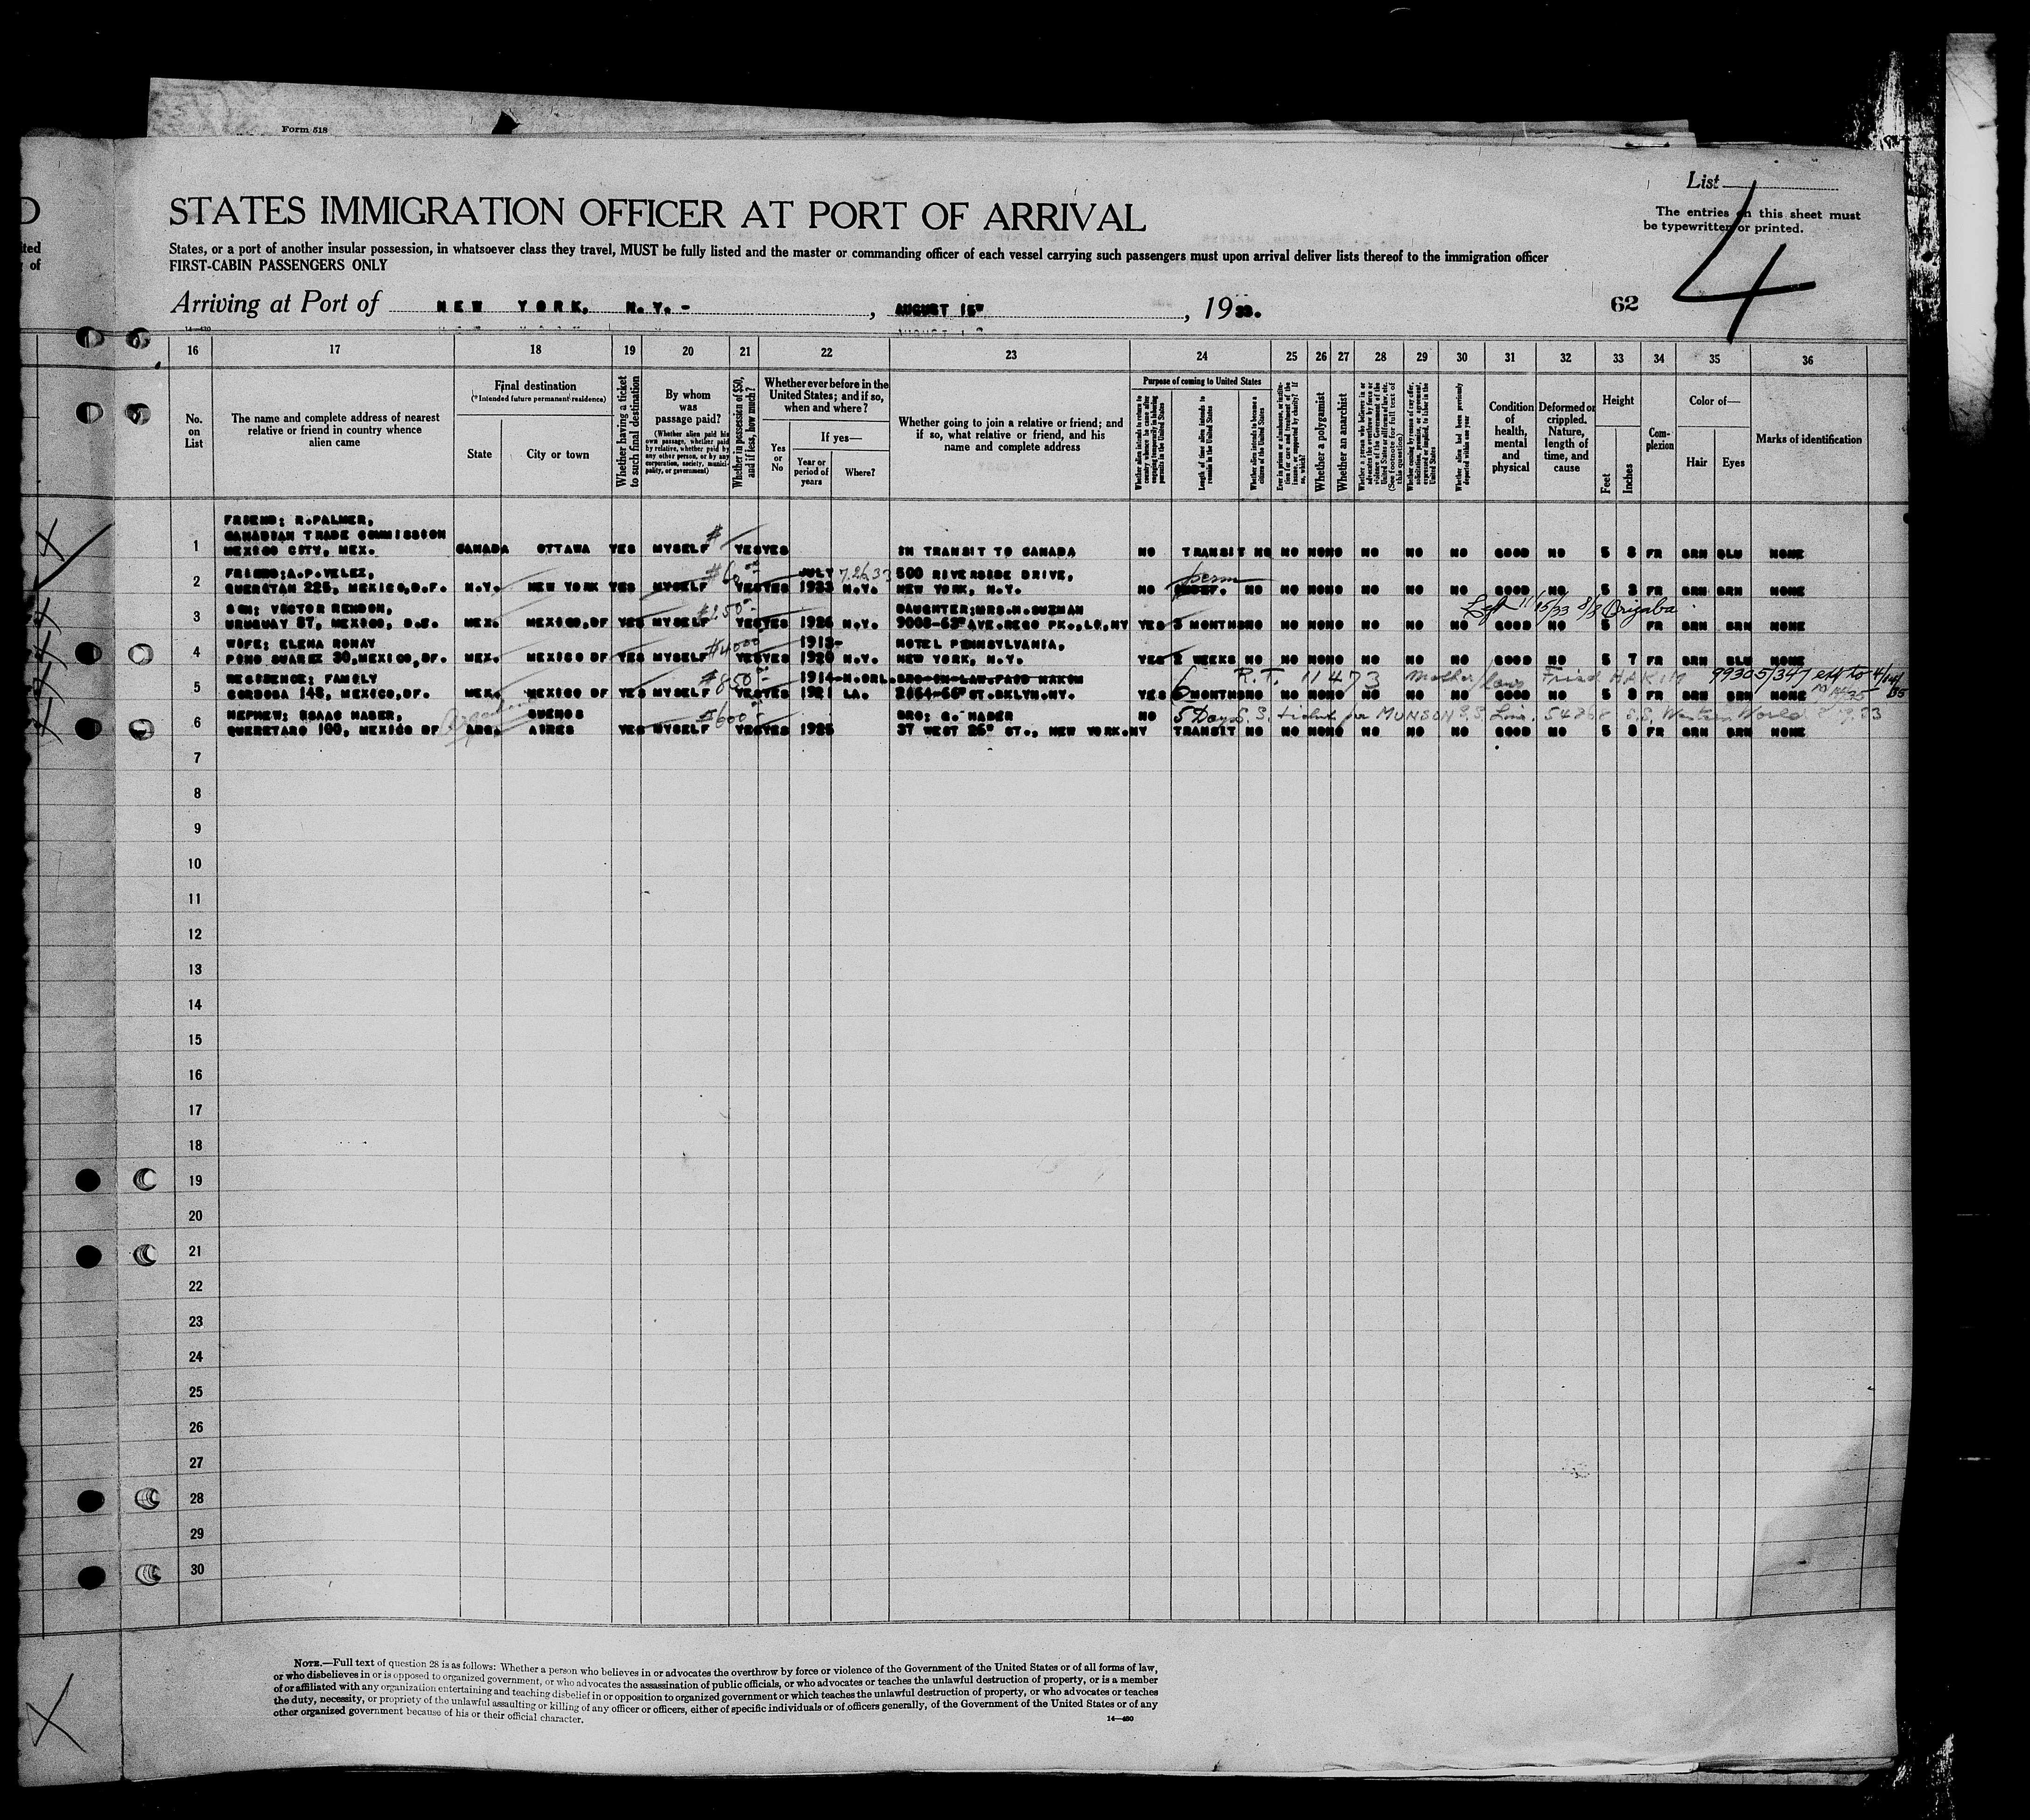 Form 518
D
ited
of
List
4
STATES IMMIGRATION OFFICER AT PORT OF ARRIVAL
The entries on this sheet must
be typewritten or printed.
States, or a port of another insular possession, in whatsoever class they travel, MUST be fully listed and the master or commanding officer of each vessel carrying such passengers must upon arrival deliver lists thereof to the immigration officer
FIRST-CABIN PASSENGERS ONLY
Arriving at Port of NEW YORK, N.Y.- , AUGUST 15" , 1933.
62
16 17 18 19 20 21 22 23 24 25 26 27 28 29 30 31 32 33 34 35 36
No. on List
The name and complete address of nearest relative or friend in country whence alien came
Final destination
(*Intended future permanent residence)
State
City or town
Whether having a ticket to such final destination
By whom was passage paid?
(Whether alien paid his own passage, whether paid by relative, whether paid by any other person, or by any corporation, society, municipality, or government)
Whether in possession of $50, and if less, how much?
Whether ever before in the United States; and if so, when and where?
Yes or No
If yes—
Year or period of years
Where?
Whether going to join a relative or friend; and if so, what relative or friend, and his name and complete address
Purpose of coming to United States
Whether alien intends to return to country whence he came after engaging temporarily in laboring pursuits in the United States
Length of time alien intends to remain in the United States
Whether alien intends to become a citizen of the United States
Ever in prison or almshouse, or institution for care and treatment of the insane, or supported by charity? If so, which?
Whether a polygamist
Whether an anarchist
Whether a person who believes in or advocates the overthrow by force or violence of the Government of the United States or all forms of law, etc. (See footnote for full text of this question)
Whether coming by reason of any offer, solicitation, promise, or agreement, expressed or implied, to labor in the United States
Whether alien had been previously deported within one year
Condition of health, mental and physical
Deformed or crippled. Nature, length of time, and cause
Height
Feet
Inches
Complexion
Color of—
Hair
Eyes
Marks of identification
FRIEND; R.PALMER,
CANADIAN TRADE COMMISSION
1 MEXICO CITY, MEX. CANADA OTTAWA YES MYSELF YES YES IN TRANSIT TO CANADA NO TRANSIT NO NO NO NO NO NO NO GOOD NO 5 8 FR BRN BLU NONE
FRIEND;A.P.VELEZ, $60 JULY 7.26.33 500 RIVERSIDE DRIVE, perm
2 QUERETAN 225, MEXICO,D.F. N.Y. NEW YORK YES MYSELF YES YES 1933 N.Y. NEW YORK, N.Y. NO NO NO NO NO NO NO NO GOOD NO 5 3 FR BRN BRN NONE
SON; VICTOR RENDON, $250 DAUGHTER;MRS.H.GUZMAN Lft 11/15/33 S/S Orizaba
3 URUGUAY 87, MEXICO, D.F. MEX. MEXICO,DF YES MYSELF YES YES 1926 N.Y. 9008-63" AVE.REGO PK.,LI,NY YES 3 MONTHS NO NO NO NO NO NO NO GOOD NO 5 FR BRN BRN NONE
WIFE; ELENA RONAY $400 1913- HOTEL PENNSYLVANIA,
4 PINO SUAREZ 30,MEXICO,DF. MEX. MEXICO DF YES MYSELF YES YES 1920 N.Y. NEW YORK, N.Y. YES 2 WEEKS NO NO NO NO NO NO NO GOOD NO 5 7 FR BRN BLU NONE
RESIDENCE; FAMILY $850 1914-N.ORL. BRO-IN-LAW.FAID HAKIM 6 R.T. 11473 HAKIM 99305/347
5 CORDOBA 148, MEXICO,DF. MEX. MEXICO DF YES MYSELF YES YES 1921 LA. 2164-66" ST.BKLYN.NY. YES MONTHS NO NO NO NO NO NO NO GOOD NO 5 8 FR BRN BRN NONE
NEPHEW; ISAAC NADER, BUENOS $600 BRO; G. NADER NO 5 Days S.S. ticket per MUNSON S.S. Line. 54768 S.S. Western World
6 QUERETARO 100, MEXICO DF ARG. AIRES YES MYSELF YES YES 1925 37 WEST 26" ST., NEW YORK.NY TRANSIT NO NO NO NO NO NO NO GOOD NO 5 8 FR BRN BRN NONE
7
8
9
10
11
12
13
14
15
16
17
18
19
20
21
22
23
24
25
26
27
28
29
30
NOTE.—Full text of question 28 is as follows: Whether a person who believes in or advocates the overthrow by force or violence of the Government of the United States or of all forms of law,
or who disbelieves in or is opposed to organized government, or who advocates the assassination of public officials, or who advocates or teaches the unlawful destruction of property, or is a member
of or affiliated with any organization entertaining and teaching disbelief in or opposition to organized government or which teaches the unlawful destruction of property, or who advocates or teaches
the duty, necessity, or propriety of the unlawful assaulting or killing of any officer or officers, either of specific individuals or of officers generally, of the Government of the United States or of any
other organized government because of his or their official character.
14—480